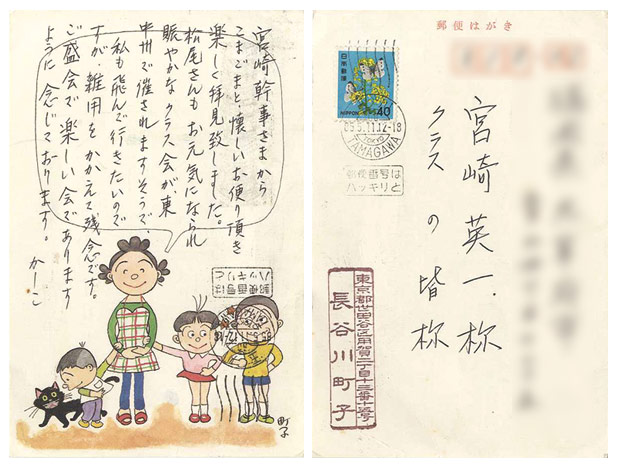 宮崎幹事さまから
こまごまと懐しいお便り頂き
楽しく拝見致しました。
松尾さんもお元気になられ
賑やかなクラス会が東
中州で催されますそうで、
私も飛んで行きたいので
すが、雑用をかかえて残念です。
ご盛会で楽しい会であります
ように念じております。
かーこ
郵便番号は
ハッキリと
85.5.11.12-18
町子
郵便はがき
日本郵便
NIPPON
40
85.5.11.12-18
TOKYO
TAMAGAWA
郵便番号は
ハッキリと
宮崎英一様
クラスの皆様
東京都世田谷区用賀一丁目
長谷川町子